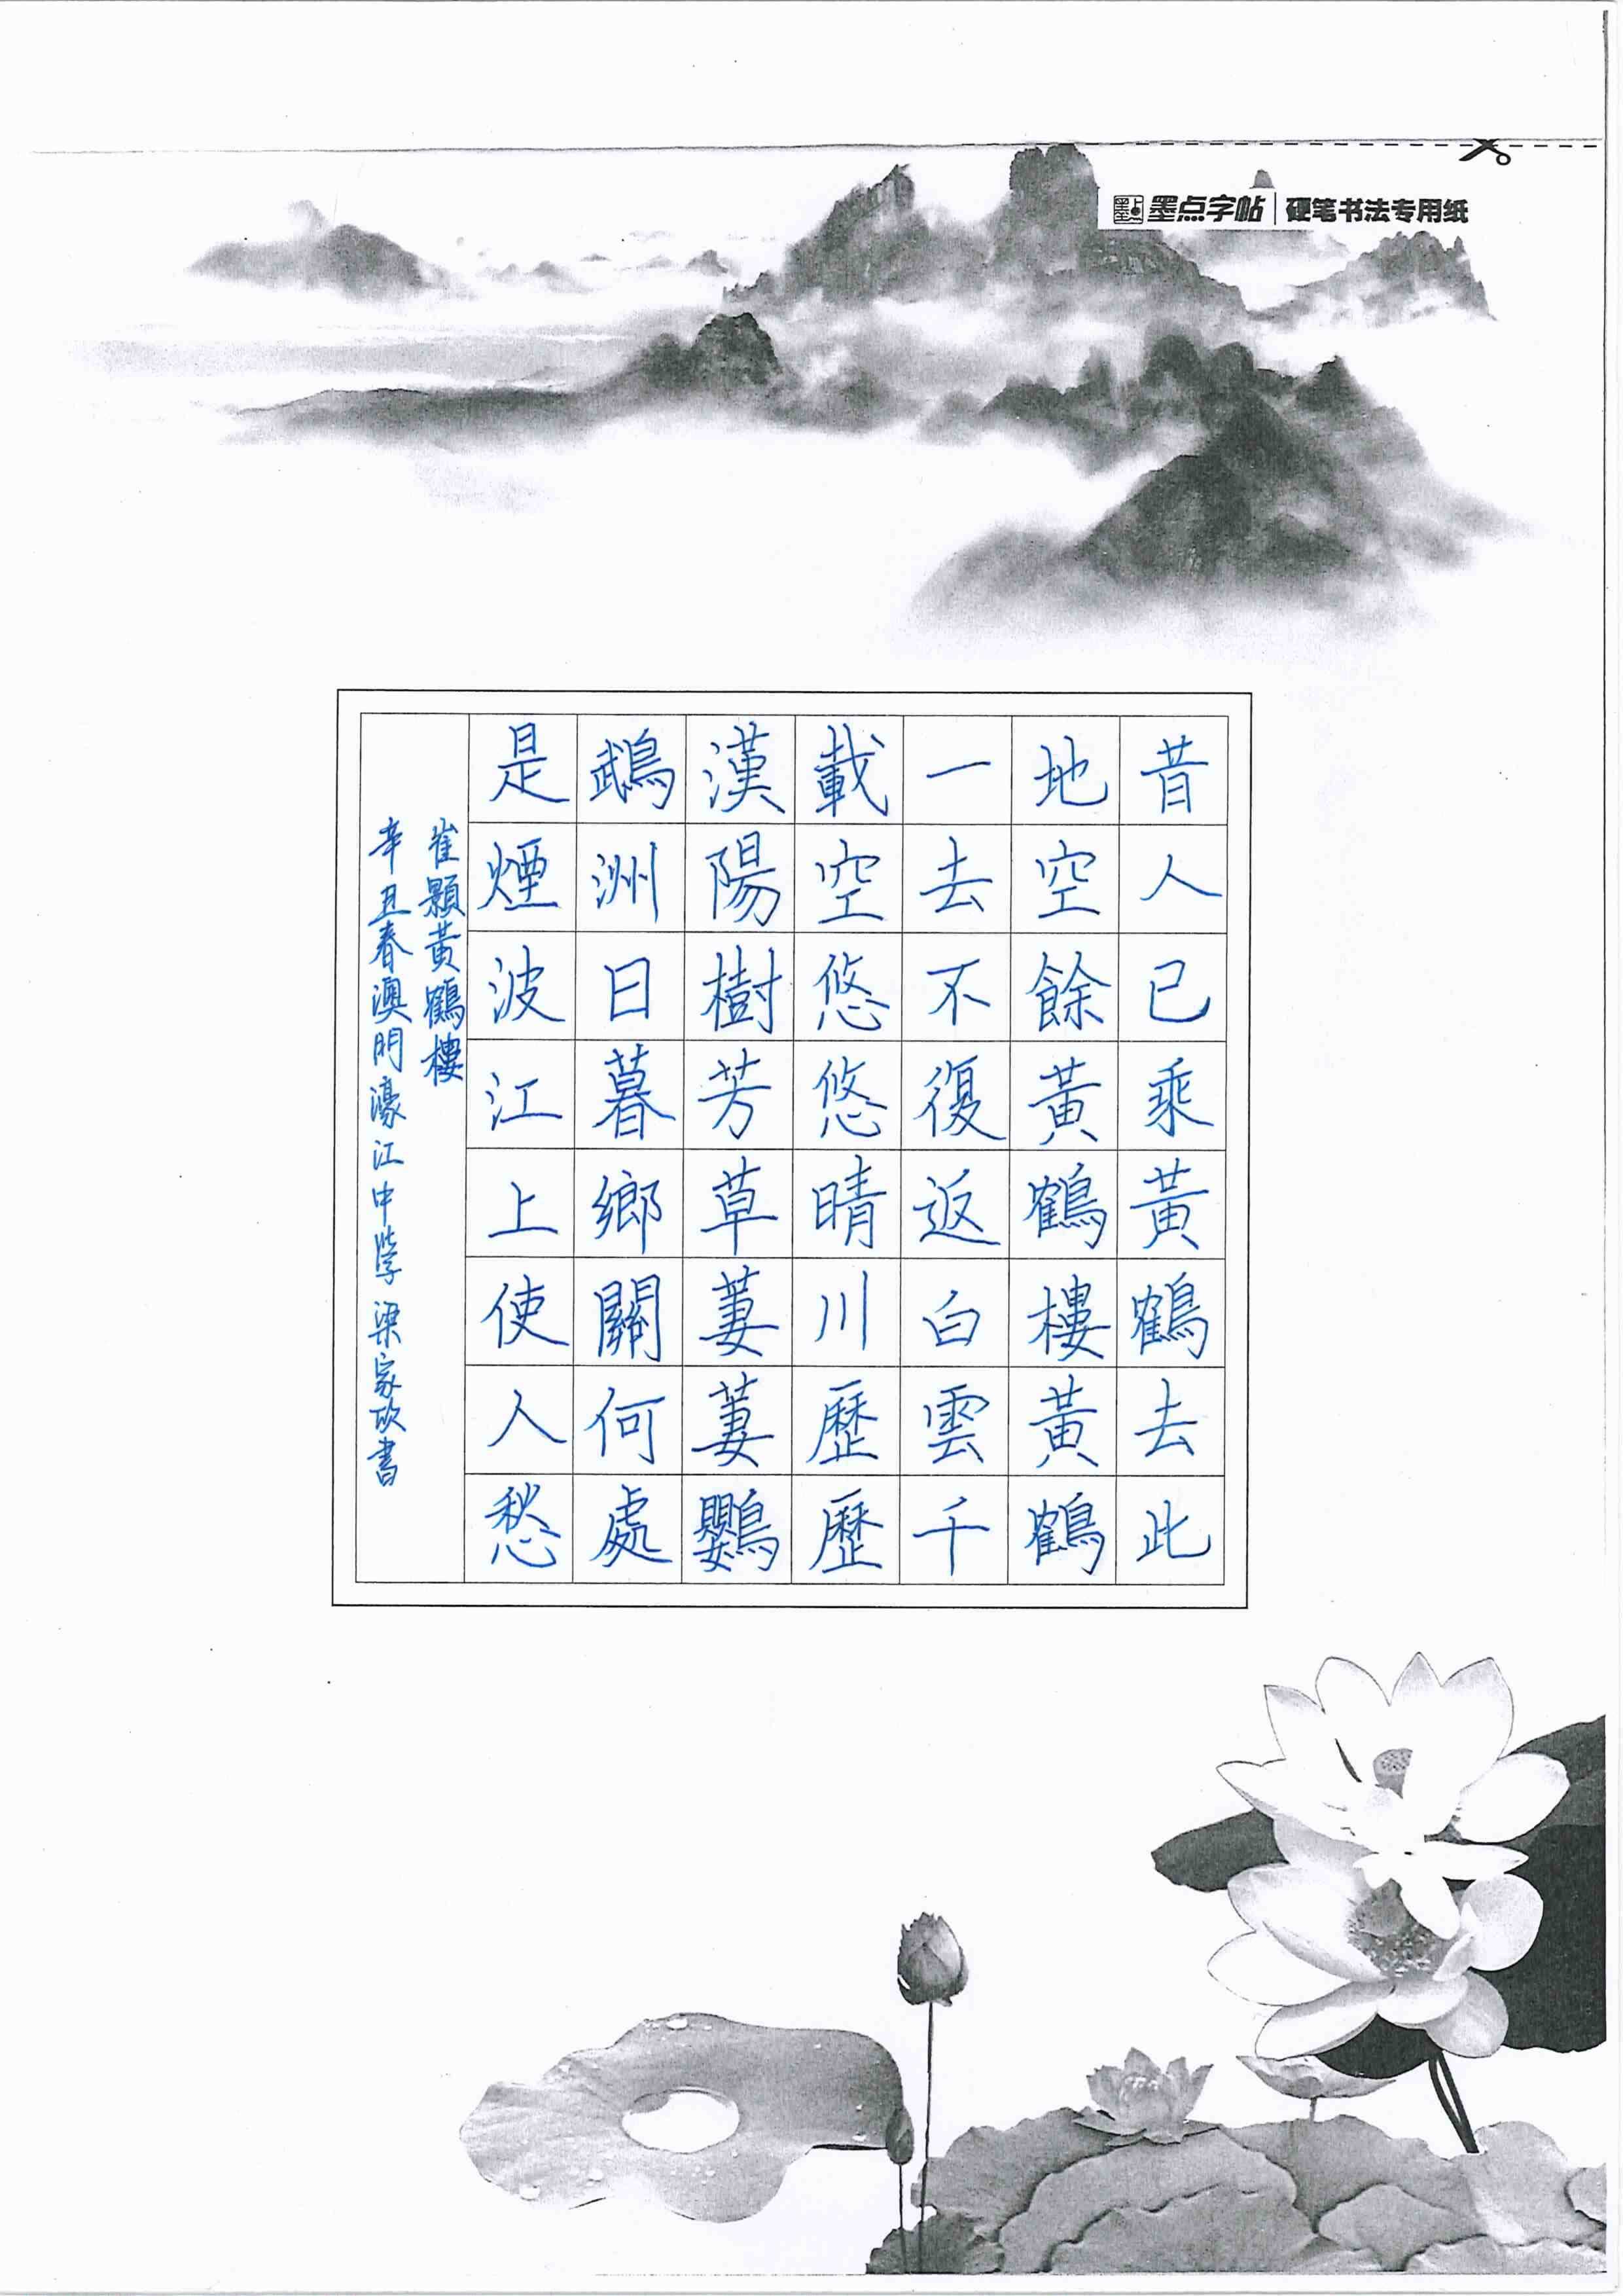 墨点字帖 硬笔书法专用纸
昔人已乘黃鶴去此
地空餘黃鶴樓黃鶴
一去不復返白雲千
載空悠悠晴川歷歷
漢陽樹芳草萋萋鸚
鵡洲日暮鄉關何處
是煙波江上使人愁
崔顥黃鶴樓
辛丑春澳門濠江中學 梁家欣書